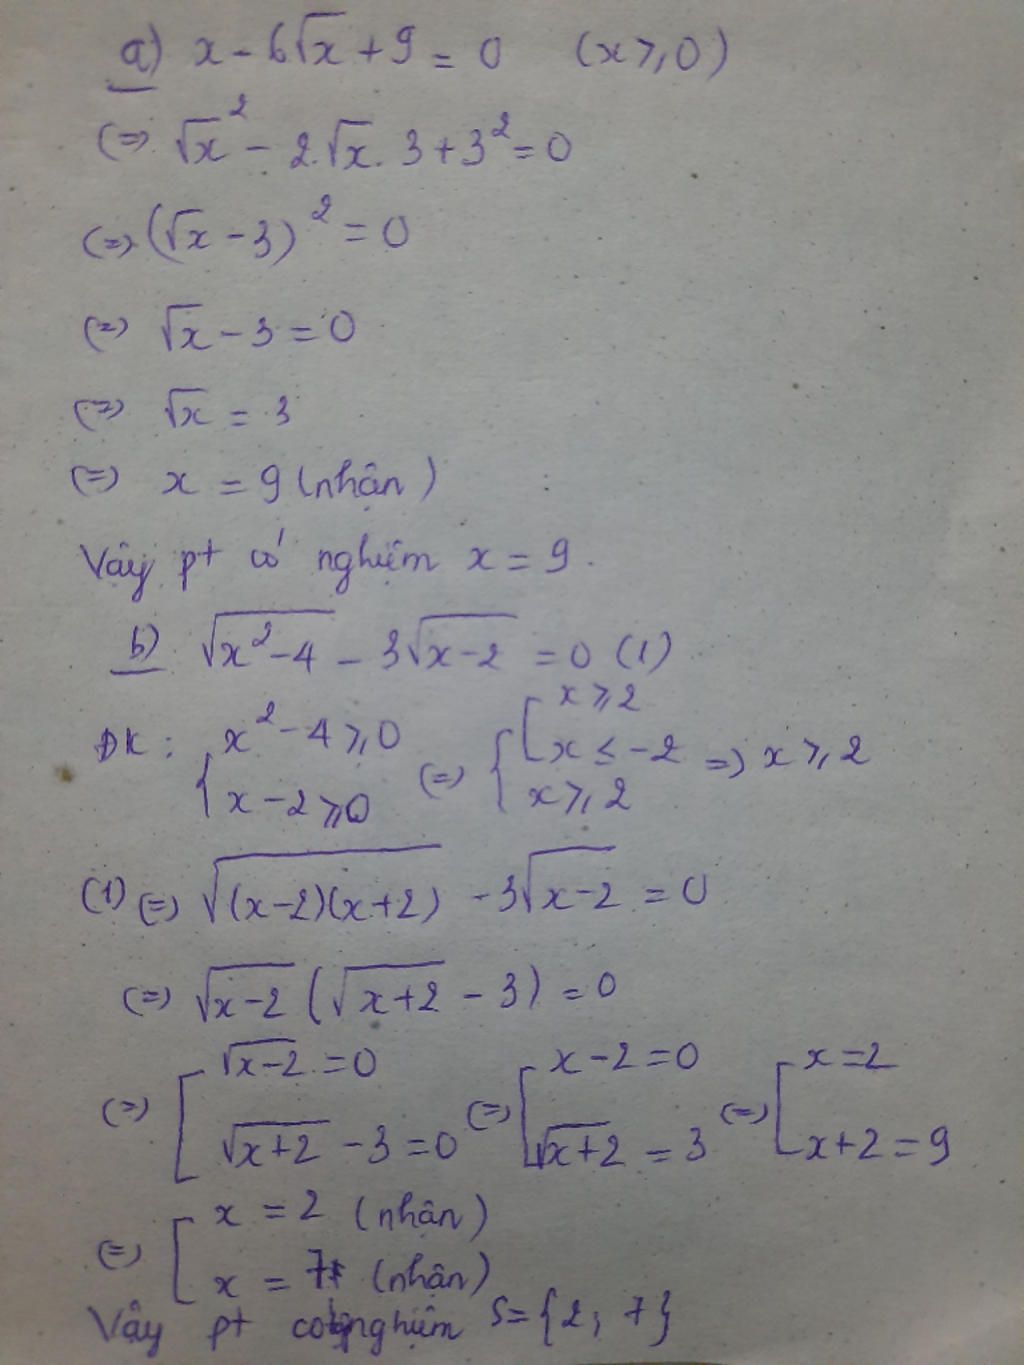 a) x - 6√x + 9 = 0 (x ≥ 0)
(=) √x² - 2.√x. 3 + 3² = 0
(=) (√x - 3)² = 0
(=) √x - 3 = 0
(=) √x = 3
(=) x = 9 (nhận)
Vậy pt có nghiệm x = 9.
b) √(x² - 4) - 3√(x - 2) = 0 (1)
ĐK: { x² - 4 ≥ 0 ; x - 2 ≥ 0 (=) { [ x ≥ 2 ; x ≤ -2 ; x ≥ 2 => x ≥ 2
(1) (=) √((x-2)(x+2)) - 3√(x-2) = 0
(=) √(x-2) (√(x+2) - 3) = 0
(=) [ √(x-2) = 0 ; √(x+2) - 3 = 0 (=) [ x - 2 = 0 ; √(x+2) = 3 (=) [ x = 2 ; x + 2 = 9
(=) [ x = 2 (nhận)
x = 7 (nhận)
Vậy pt có nghiệm S = {2; 7}